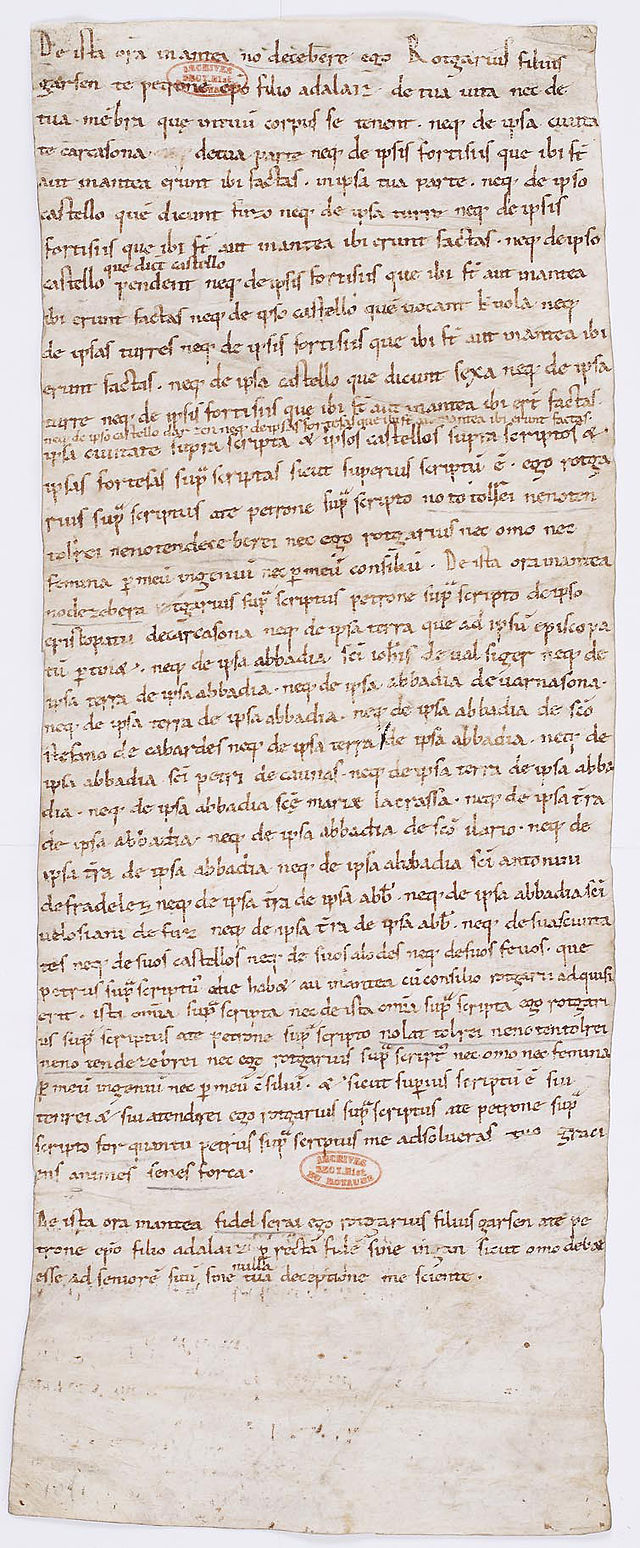 De ista ora inantea no decebre ego Rotgarius filius
garsen te petrone epo filio adalaiz de tua vita nec de
tua mebra que intuu corpus se tenent. neq. de ipsa civita
te carcasona detua parte neq de ipsis fortisiis que ibi st
aut inantea erunt ibi factas. inipsa tua parte. neq. de ipso
castello que dicunt neq. de ipsa turre neq. de ipsis
fortisiis que ibi st aut inantea ibi erunt factas. neq. deipso
que dict castello
castello pendent neq. de ipsis fortisiis que ibi st aut inantea
ibi erunt factas neq. de ipso castello que vocant neq.
de ipsas turres neq. de ipsis fortisiis que ibi st aut inantea ibi
erunt factas. neq. de ipsa castello que dicunt sexa neq. de ipsa
turre neq. de ipsis fortisiis que ibi st aut inantea ibi ert factas.
neq. de ipso castello neq. de ipsas que ibi st aut inantea ibi erunt factas.
ipsa civitate supra scripta & ipsos castellos supra scriptos &
ipsas fortesas supra scriptas sicut superius scriptu e. ego rotga
rius supra scriptus ate petrone supra scripto no to tolrei nenoten
tolrei nenotendecebrei nec ego rotgarius nec omo nec
femina p meu ingeniu nec p meu consiliu. De ista ora inantea
nodezebera rotgarius supra scriptus petrone supra scripto de ipso
episcopatu decarcasona neq. de ipsa terra que ad ipsu episcopa
tu ptin&. neq. de ipsa abbadia sci iohis de val siger neq. de
ipsa terra de ipsa abbadia. neq. de ipsa abbadia de varnasona.
neq. de ipsa terra de ipsa abbadia. neq. de ipsa abbadia de sco
stefano de cabardes neq. de ipsa terra de ipsa abbadia. neq. de
ipsa abbadia sci petri de caunas. neq. de ipsa terra de ipsa abba
dia. neq. de ipsa abbadia sce marie lacrassa. neq. de ipsa tra
de ipsa abbadia. neq. de ipsa abbadia de sco ilario. neq. de
ipsa tra de ipsa abbadia neq. de ipsa abbadia sci antonini
de fradelez neq. de ipsa tra de ipsa abb. neq. de ipsa abbadia sci
velosiani de fuz neq. de ipsa tra de ipsa abb. neq. de suas civita
tes neq. de suos castellos neq. de suos alodes neq. de suos fevos. que
petrus supra scriptus odie hab& au inantea cu consilio rotgarii adquisi
erit. ista omia supra scripta nec de ista omia supra scripta ego rotgari
us supra scriptus ate petrone supra scripto nolat tolrei nenotentolrei
neno tendezebrei nec ego rotgarius supra script nec omo nec femina
p meu ingeniu nec p meu csiliu. & sicut superius scriptu e siu
tenrei & siu atendrei ego rotgarius supra scriptus ate petrone supra
scripto for quantu petrus supra scriptus me absolveras tuo graci
ens animes senes forca.
De ista ora inantea fidel serai ego rotgarius filius garsen ate pe
trone epo filio adalaiz p recta fide sine ingan sicut omo deb&
nulla
esse ad seniore suu, sine tua deceptione me sciente.
ARCHIVES
SECT. HIST.
DU ROYAUME
ARCHIVES
SECT. HIST.
DU ROYAUME